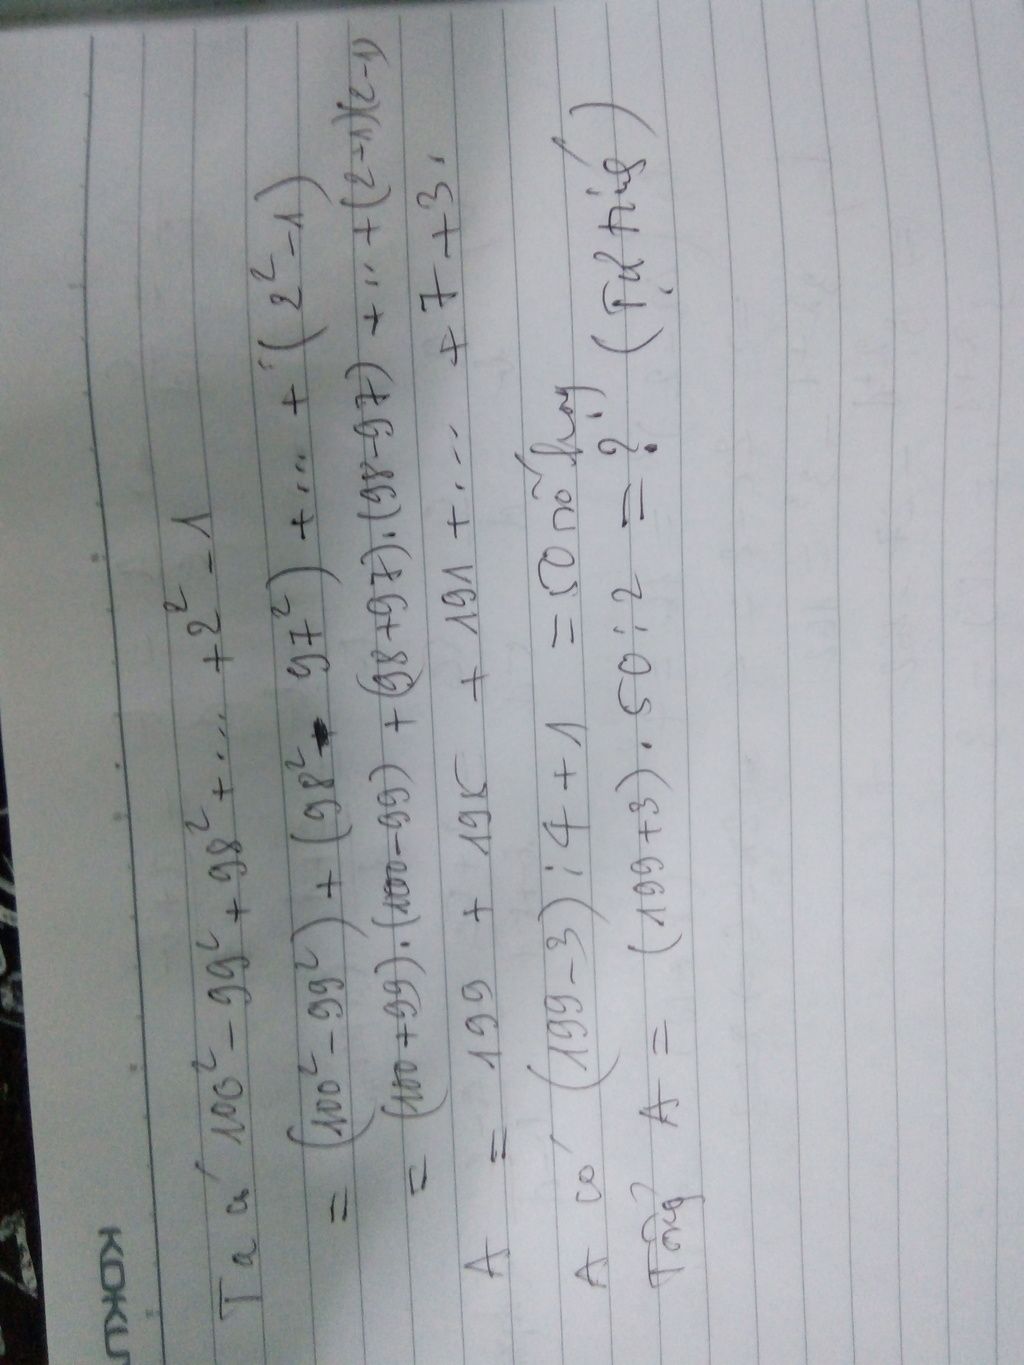 KOKU
Ta có 100² - 99² + 98² + .... + 2² - 1
= (100² - 99²) + (98² - 97²) + ... + (2² - 1)
= (100 + 99).(100 - 99) + (98 + 97).(98 - 97) + .. + (2 - 1)(2 - 1)
A = 199 + 195 + 191 + ... + 7 + 3.
A có (199 - 3) : 4 + 1 = 50 số hạng
Tổng A = (199 + 3) . 50 : 2 = ? (Tự tính)